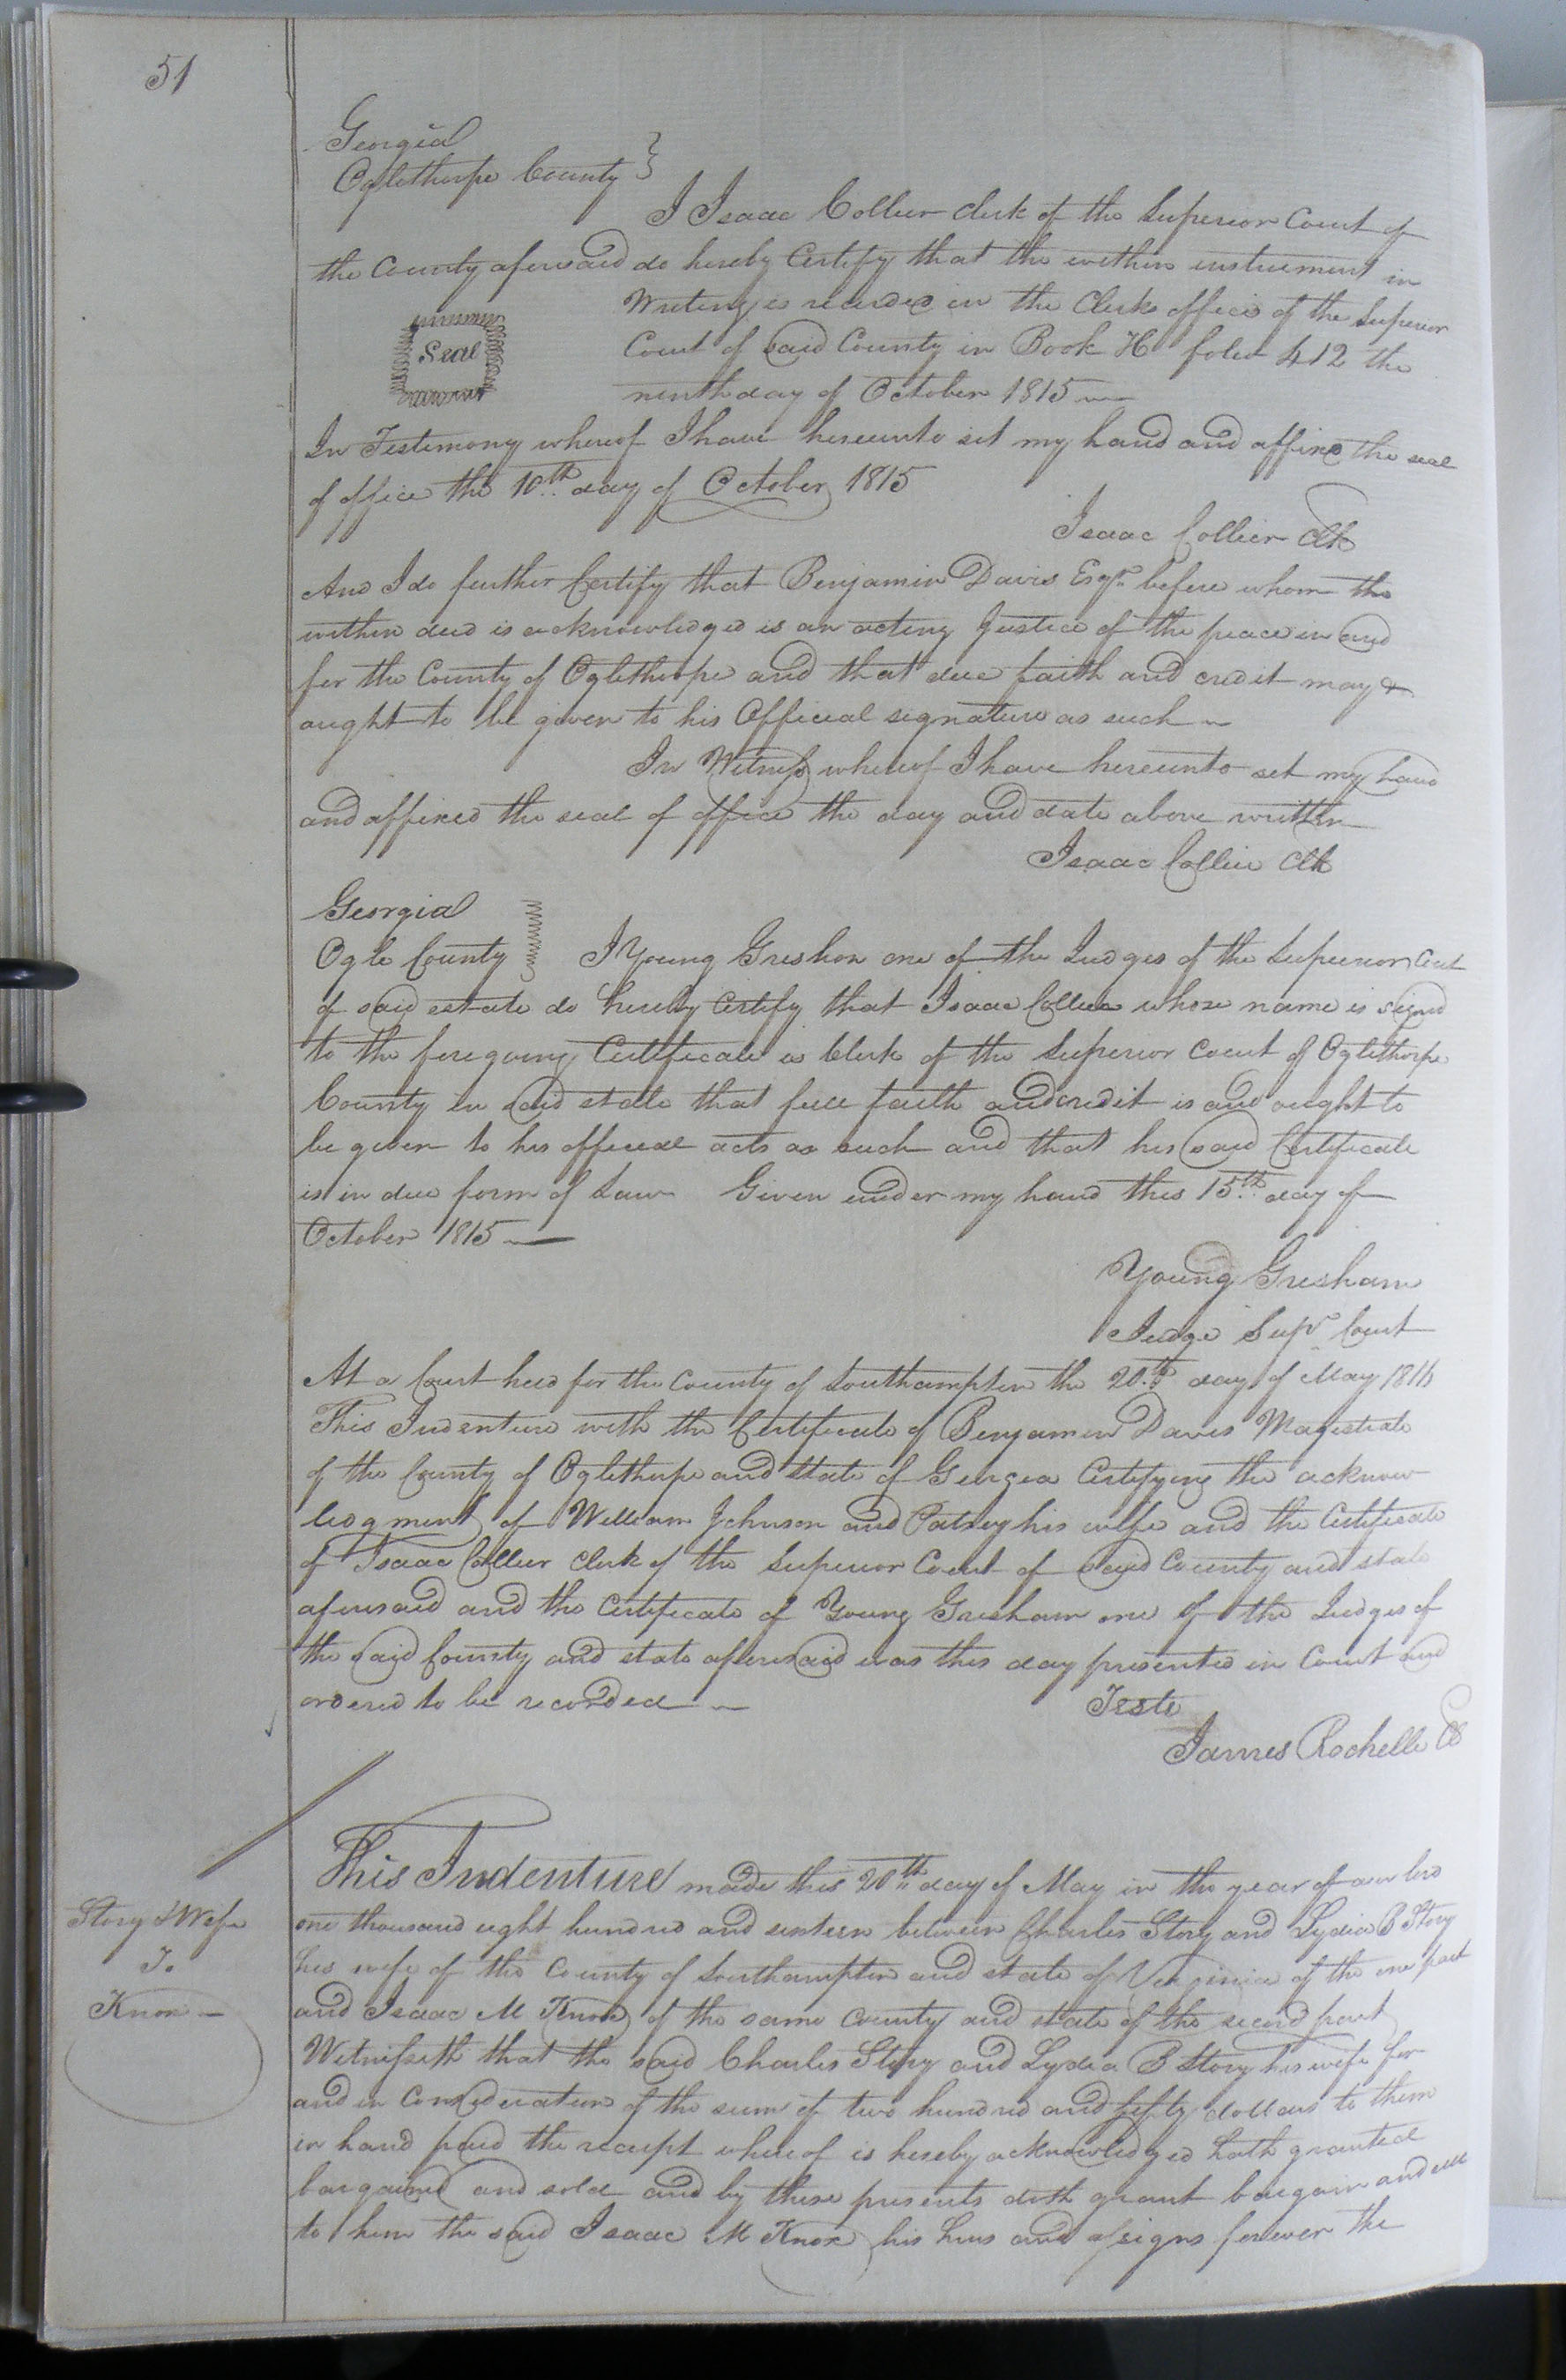 51
Georgia
Oglethorpe County }
I Isaac Collier Clerk of the Superior Court of
the County aforesaid do hereby Certify that the within instrument in
Writing is recorded in the Clerks office of the Superior
Seal
Court of said County in Book H folio 412 the
ninth day of October 1815
In Testimony whereof I have hereunto set my hand and affixed the seal
of office the 10th day of October 1815
Isaac Collier Clk
And I do further Certify that Benjamin Davis Esqr before whom the
within deed is acknowledged is an acting Justice of the peace in and
for the County of Oglethorpe and that due faith and credit may &
aught to be given to his Official signature as such
In Witness whereof I have hereunto set my hand
and affixed the seal of office the day and date above written
Isaac Collier Clk
Georgia
Ogle County } I Young Greshon one of the Judges of the Superior Court
of said estate do hereby Certify that Isaac Collier whose name is signed
to the foregoing Certificate is Clerk of the Superior Court of Oglethorpe
County in said state that full faith and credit is and ought to
be given to his official acts as such and that his said Certificate
is in due form of Law Given under my hand this 15th day of
October 1815
Young Gresham
Judge Supr Court
At a Court held for the County of Southampton the 20th day of May 1816
This Indenture with the Certificate of Benjamin Davis Magistrate
of the County of Oglethorpe and State of Georgia Certifying the acknow
ledgment of William Johnson and Patsey his wife and the Certificate
of Isaac Collier Clerk of the Superior Court of said County and state
aforesaid and the Certificate of Young Gresham one of the Judges of
the said County and state aforesaid was this day presented in Court and
ordered to be recorded
Teste
James Rochelle CC
This Indenture made this 20th day of May in the year of our lord
Story & Wife
To
Knox
one thousand eight hundred and sixteen between Charles Story and Lydia B Story
his wife of the County of Southampton and state of Virginia of the one part
and Isaac M Knox of the same County and state of the second part
Witnesseth that the said Charles Story and Lydia B Story his wife for
and in Consideration of the sum of two hundred and fifty dollars to them
in hand paid the receipt whereof is hereby acknowledged hath granted
bargained and sold and by these presents doth grant bargain and sell
to him the said Isaac M Knox his heirs and assigns forever the